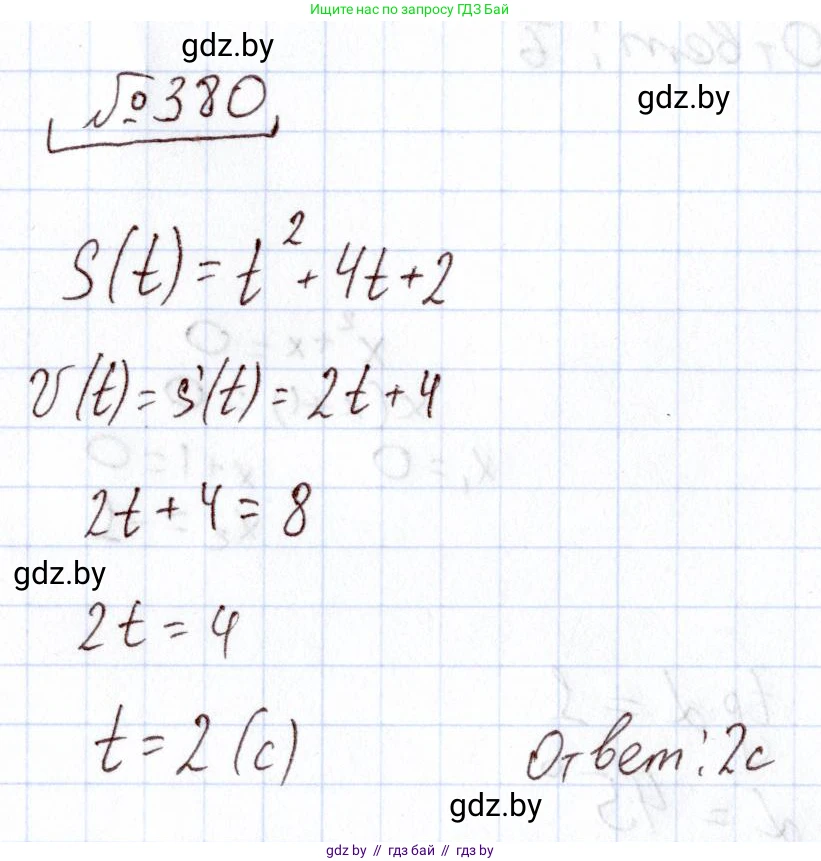 Ищите нас по запросу ГДЗ Бай
gdz.by
№380
gdz.by
S(t) = t² + 4t + 2
v(t) = s'(t) = 2t + 4
2t + 4 = 8
gdz.by
2t = 4
t = 2 (с)
Ответ: 2с
gdz.by
gdz.by // гдз бай // gdz.by